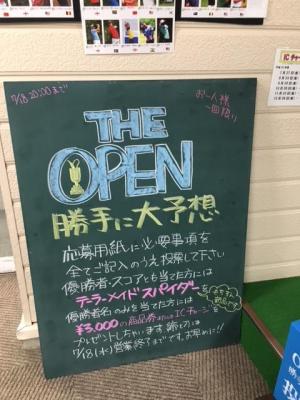 7/18 20:00まで
お一人様
一回限り
THE
OPEN
勝手に大予想
応募用紙に必要事項を
全てご記入のうえ投票して下さい
優勝者・スコアとも当てた方には
テーラーメイドスパイダーを
優勝者名のみを当てた方には
¥3,000の商品券またはICチャージを
プレゼントしちゃいます
7/18(水)営業終了までです。お早めに!!